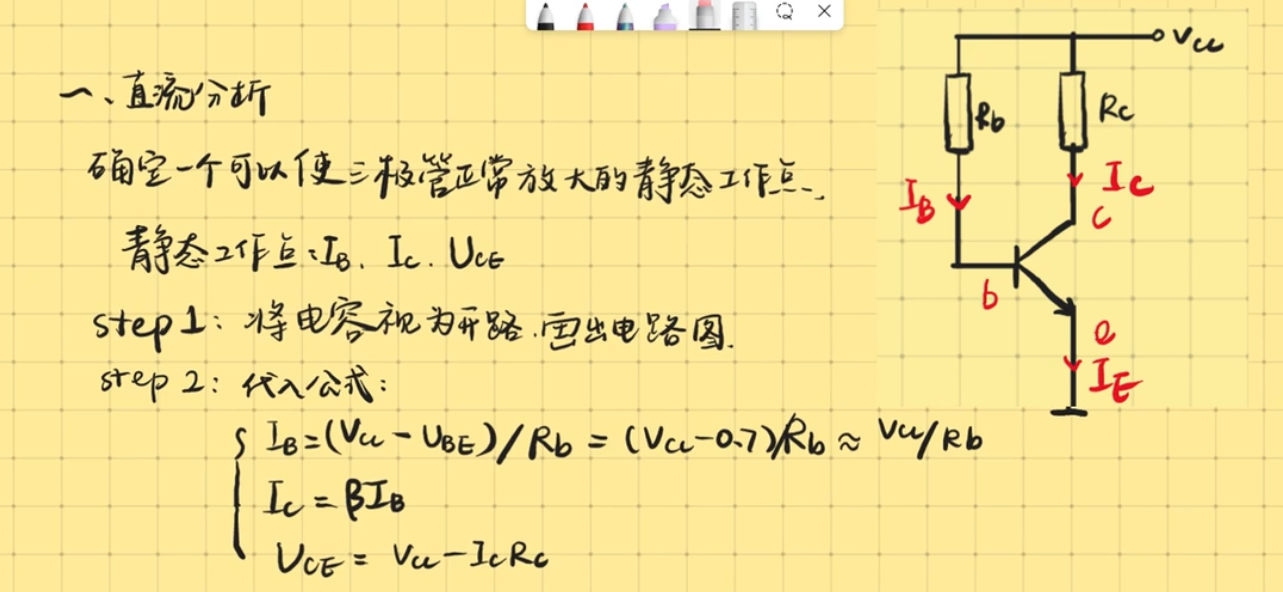 一、直流分析
确定一个可以使三极管正常放大的静态工作点.
静态工作点:IB、Ic、UCE
step1:将电容视为开路.画出电路图.
step 2:代入公式:
IB=(Vcc-UBE)/Rb=(Vcc-0.7)/Rb≈Vcc/Rb
Ic=βIB
UCE=Vcc-IcRc
Vcc
Rb
Rc
IB
Ic
c
b
e
IE